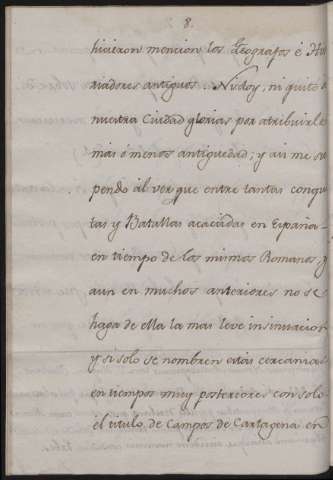 8.
hicieron mencion los Geografos é His
riadores antiguos.. Ni doy, ni quito
nuestra Ciudad glorias por atribuirle
mas ó menos antiguedad; y asi me su
pendo al ver que entre tantas conqu
tas y Batallas acaecidas en España
en tiempo de los mismos Romanos, y
aun en muchos anteriores no se
haga de ella la mas leve insinuacion
y si solo se nombren estas cercanias
en tiempos muy posteriores con solo
el titulo de Campos de Cartagena en